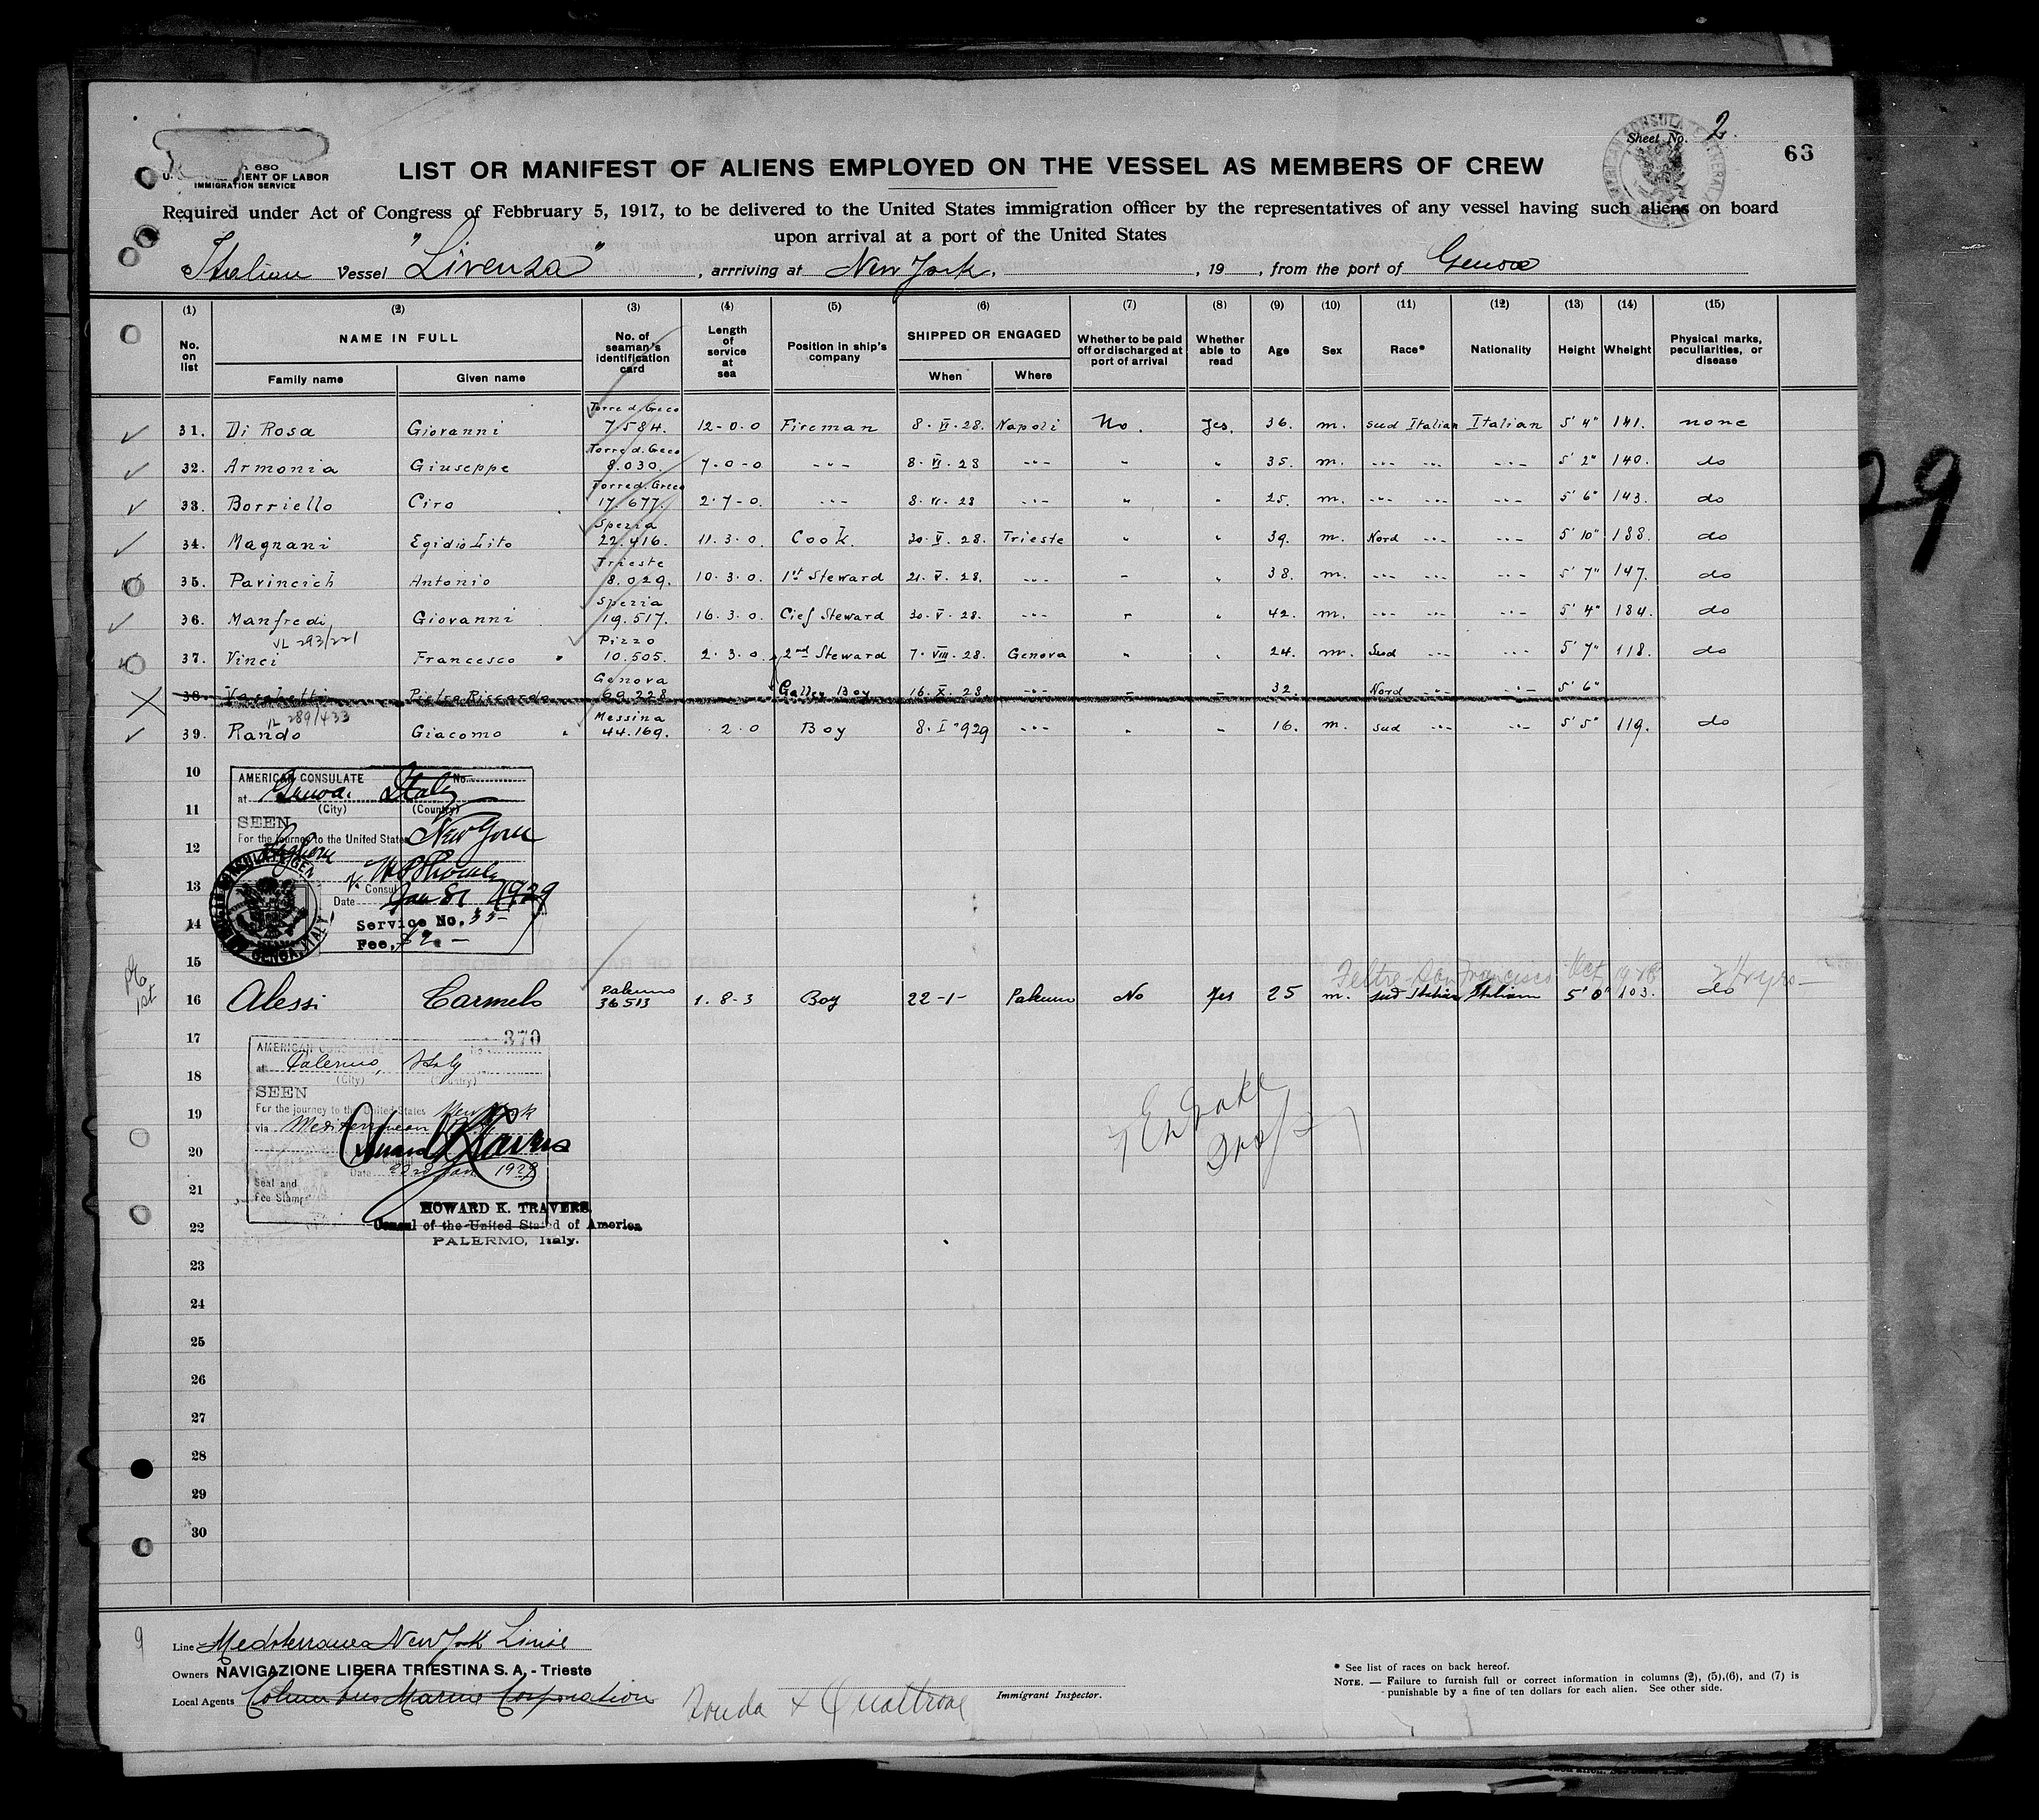 Sheet No. 2.
63
680
IENT OF LABOR
IMMIGRATION SERVICE
LIST OR MANIFEST OF ALIENS EMPLOYED ON THE VESSEL AS MEMBERS OF CREW
Required under Act of Congress of Febbruary 5, 1917, to be delivered to the United States immigration officer by the representatives of any vessel having such aliens on board
upon arrival at a port of the United States
Italian Vessel "Livenza", arrriving at New York, , 19 , from the port of Genova
(1) (2) (3) (4) (5) (6) (7) (8) (9) (10) (11) (12) (13) (14) (15)
No. on list NAME IN FULL Family name Given name No. of seaman's identification card Length of service at sea Position in ship's company SHIPPED OR ENGAGED When Where Whether to be paid off or discharged at port of arrival Whether able to read Age Sex Race* Nationality Height Wheight Physical marks, peculiarities, or disease
31. Di Rosa Giovanni Torre d. Greco 7.584. 12-0-0 Fireman 8. VI. 28. Napoli No. Yes. 36. m. Sud Italian Italian 5' 4" 141. none
32. Armonia Giuseppe Torre d. Greco 8.030. 7-0-0 --- 8. VI. 28 --- " " 35. m. --- --- --- 5' 2" 140. do
33. Borriello Ciro Torre d. Greco 17.677. 2-7-0. --- 8. VI. 28 --- " " 25. m. --- --- --- 5' 6" 143. do
34. Magnani Egidio Lito Spezia 22.416. 11.3.0. Cook 30. V. 28. Trieste " " 39. m. Nord --- --- 5' 10" 188. do
35. Pavincich Antonio Trieste 8.029. 10.3.0. 1st Steward 21. V. 28. --- " " 38. m. --- --- --- 5' 7" 147. do
36. Manfredi Giovanni Spezia 19.517. 16.3.0. Cief Steward 30. V. 28. --- " " 42. m. --- --- --- 5' 4" 184. do
VL 293/221
37. Vinci Francesco Pizzo 10.505. 2.3.0. 2nd Steward 7. VIII. 28. Genova " " 24. m. Sud --- --- 5' 7" 118. do
38. Pietro Riccardo Genova 69.228 Galley Boy 16. X. 28. --- - - 32. Nord --- --- 5' 6"
VL 289/433
39. Rando Giacomo Messina 44.169. .2.0 Boy 8. I° 929 --- " " 16. m. Sud --- --- 5' 5" 119. do
10
AMERICAN CONSULATE No.
at Genoa. Italy
(City) (Country)
11
SEEN
For the journey to the United States New York
12
13
Consul
Date Jan 8, 1929
14
Service No. 35-
Fee, $2.-
GENOA, ITALY
15
Feltre San Francisco Oct 1928
1st
16 Alessi Carmelo Palermo 36513 1.8-3 Boy 22-1- Palermo No Yes 25 m. Sud Italian Italian 5' 0" 103. do
17
370
AMERICAN CONSULATE
at Palermo, Italy
(City) (Country)
18
SEEN
19
For the journey to the United States New York
via Mediterranean
20
Date 22nd Jan 1929
21
Seal and
Fee Stamp
HOWARD K. TRAVERS
22
Consul of the United States of America
PALERMO, Italy.
23
24
25
26
27
28
29
30
9
Line Mediterranea New York Linie
Owners NAVIGAZIONE LIBERA TRIESTINA S. A. - Trieste
Local Agents Columbus Marine Corporation
Immigrant Inspector.
* See list of races on back hereof.
NOTE. — Failure to furnish full or correct information in columns (2), (5),(6), and (7) is
punishable by a fine of ten dollars for each alien. See other side.
29